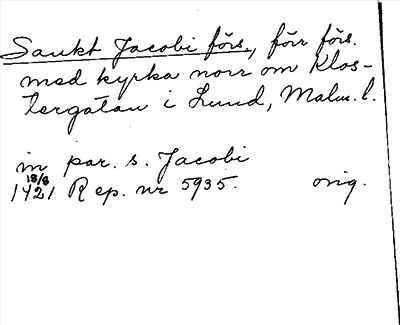 Sankt Jacobi förs., förr förs.
med kyrka norr om Klos-
tergatan i Lund, Malm. l.
in par. s. Jacobi
18/8
1421 Rep. nr 5935. orig.